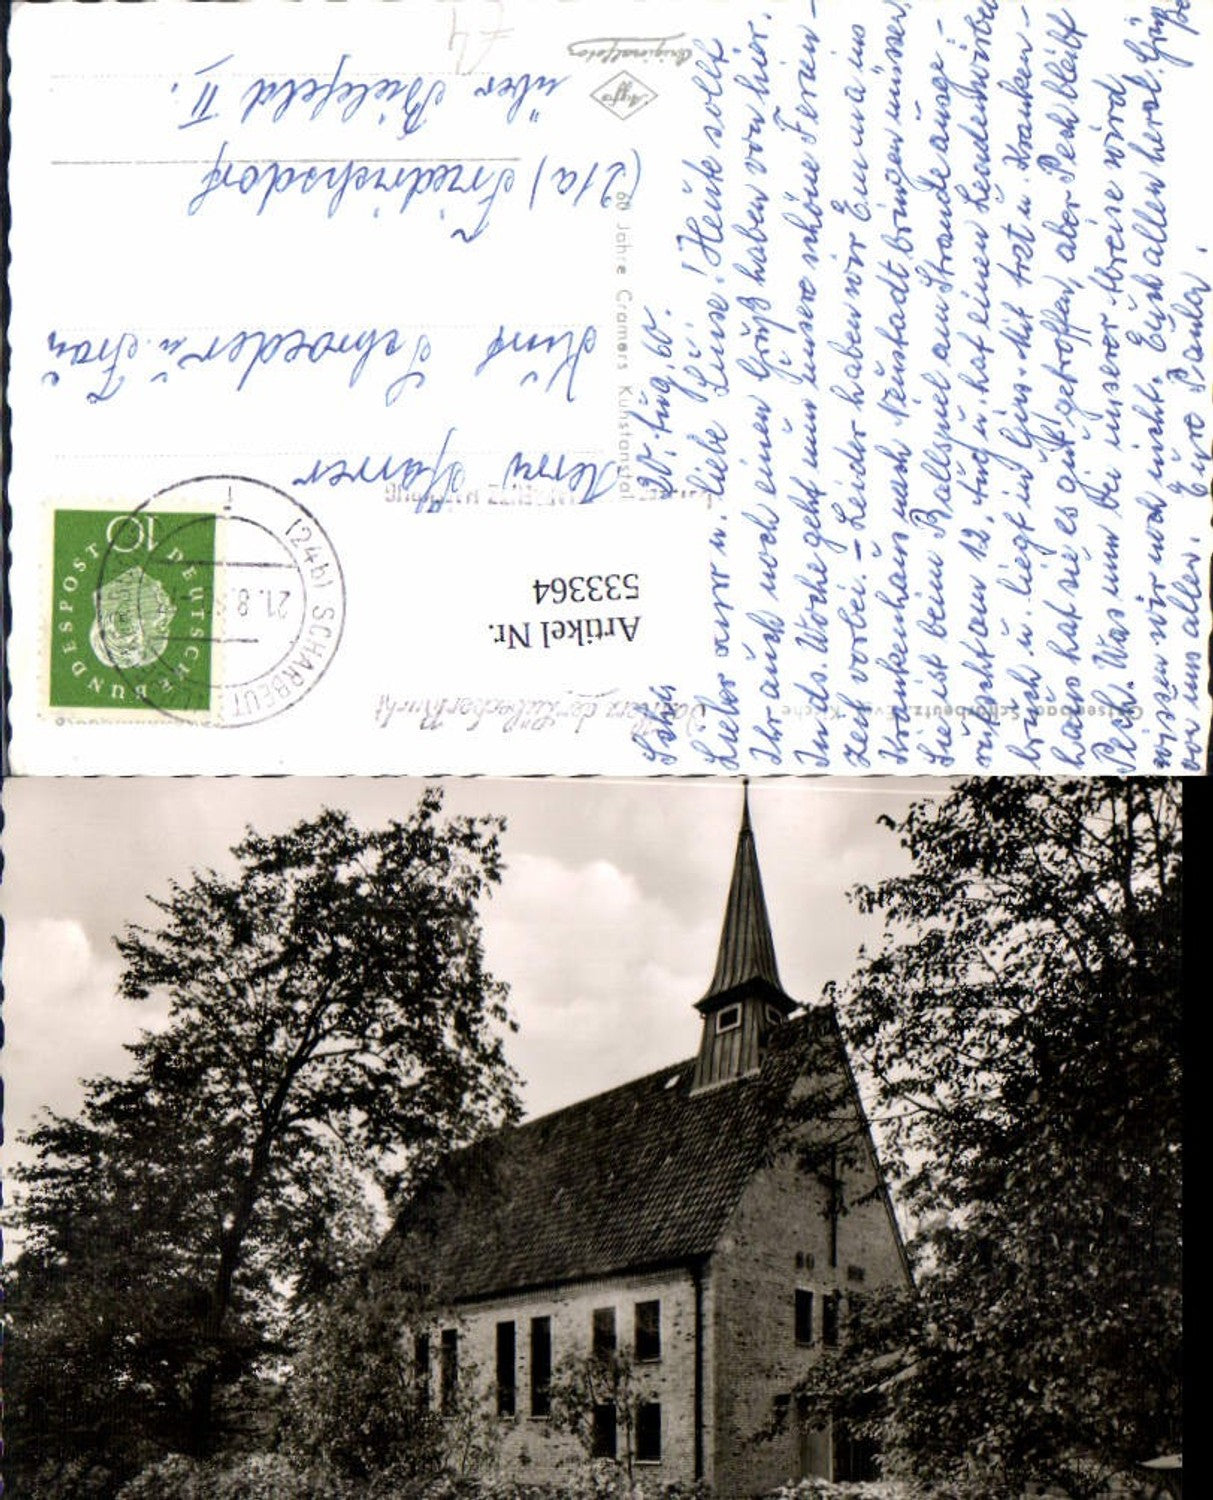 Lieber Kurt u. liebe Luise! Heute sollt
Ihr auch noch einen Gruß haben von hier.
In ds. Woche geht nun unsere schöne Ferien-
zeit vorbei. - Leider haben wir Emma ins
Krankenhaus nach Neustadt bringen müssen,
Sie ist beim Ballspiel am Strande ausge-
rutscht am 12. Aug. u. hat einen Lendenwirbel-
bruch u. liegt in Gips. Mit Arzt u. Kranken-
haus hat sie es gut getroffen, aber Pech bleibt
Pech. Was nun bei unserer Abreise wird
wissen wir noch nicht. Euch allen herzl. Grüße
von uns allen. Eure Paula.
20. Aug. 60.
Ostseebad Scharbeutz, Evg. Kirche
60 Jahre Cramers Kunstanstalt
Agfa
Originalfoto
Artikel Nr.
533364
DEUTSCHE BUNDESPOST
10
(24b) SCHARBEUTZ
21.8.
Herrn Pfarrer
Kurt Schroeder u. Frau
(21a) Friedrichsdorf
über Bielefeld II.